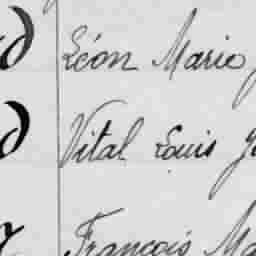 Léon Marie
Vital Louis
François